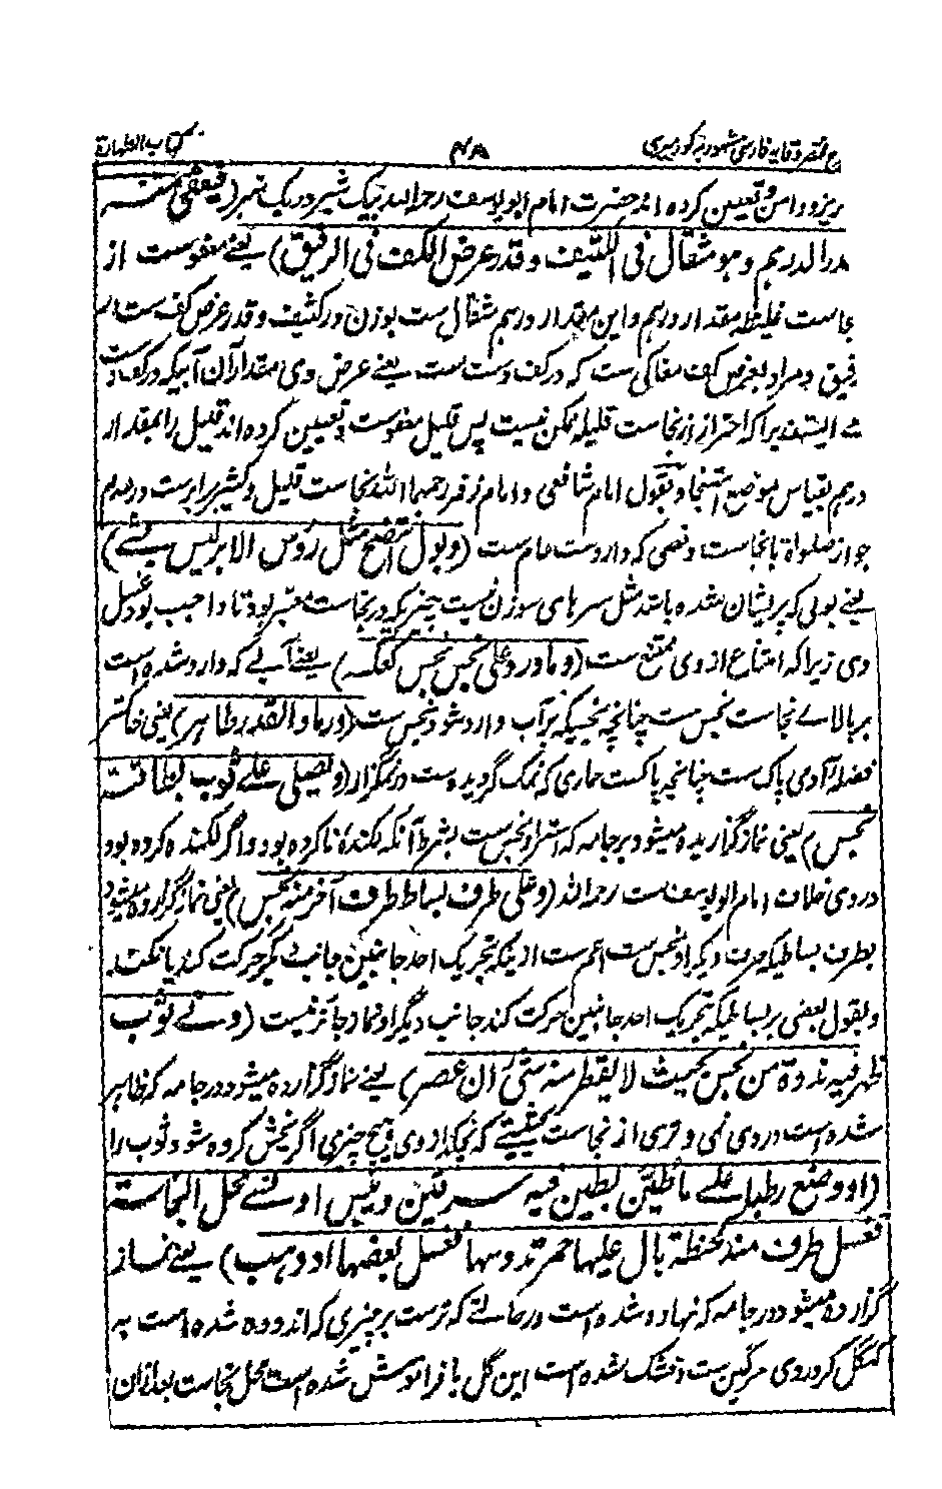 شرح مختصر وقایه فارسی مشهور به کورمیری ۴۸ کتاب الطهارة
بریزد و رامن و تعیین کرده اند حضرت امام ابو یوسف رحمه الله بیک شبر در یک شبر (فیعفی عنه
قدر الدرهم وهو مثقال فی الکثیف وقدر عرض الکف فی الرقیق) یعنے معفوست از
نجاست غلیظه مقدار درهم و این مقدار درهم مثقال ست بوزن در کثیف و قدر عرض کف ست در
رقیق و مراد بعرض کف مغاکی ست که در کف دست ست یعنے عرض وی مقدار آن آبیکه در کف دست
مے ایستد زیرا که احتراز از نجاست قلیله ممکن نیست پس قلیل معفوست و تعیین کرده اند قلیل را بمقدار
درهم بقیاس موضع استنجا و بقول امام شافعی و امام زفر رحمهما الله نجاست قلیل و کثیر برابرست در عدم
جواز صلواة با نجاست و نصی که وارد ست عام ست (وبول انتضح مثل رؤس الابر لیس بشئ)
یعنے بولی که پریشان شده باشد مثل سرهای سوزن نیست چیزیکه در نجاست معتبر بود تا واجب بود غسل
وی زیرا که امتناع از وی ممتنع ست (وما ورد علی نجس نجس کعکسه) یعنے آبے که وارد شده است
بر بالاے نجاست نجس ست چنانچه نجسیکه بر آب وارد شود نجس ست (ورماد القذر طاهر) یعنی خاکستر
فضله آدمی پاک ست چنانچه پاکست حماری که نمک گردیده است در نمکزار (ویصلی علے ثوب بطانته
نجس) یعنی نماز گزاریده میشود بر جامه که استر او نجس ست بشرط آنکه لکنده نا کرده بود و اگر لکنده کرده بود
در وی خلاف امام ابو یوسف ست رحمه الله (وعلی طرف بساط طرف آخر منه نجس) یعنی نماز گزارده میشود
بطرف بساطیکه طرف دیگر او نجس ست اعم ست از نیکه بتحریک احد جانبین جانب دیگر حرکت کند یا نکند
و بقول بعضی بر بساطیکه بتحریک احد جانبین حرکت کند جانب دیگر او نماز جائز نیست (وفے ثوب
ظهر فیه ندوة من نجس بحیث لا یقطر منه شئ ان عصر) یعنے نماز گزارده میشود در جامه که ظاهر
شده است در وی نمی و تری از نجاست بحیثیتے که نچکد از وی هیچ چیزی اگر نخش کرده شود ثوب را
(او وضع رطبا علے ما طین بطین فیه سرقین ویبس او نسے محل النجاسة
فغسل طرف منه کحنطة بال علیها حمر تدوسها فغسل بعضها او وهب) یعنے نماز
گزارده میشود در جامه که نهاده شده است در حالتے که ترست بر چیزی که اندوده شده است به
کهگل که در وی سرگین ست و خشک شده است این گل یا فراموش شده است محل نجاست بعد ازان